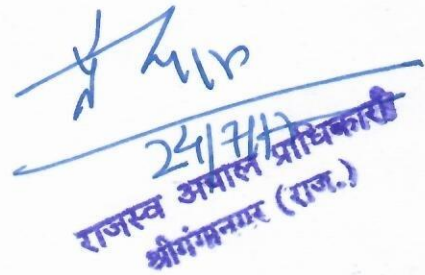 24/7/17
राजस्व अपील प्राधिकारी
श्रीगंगानगर (राज.)